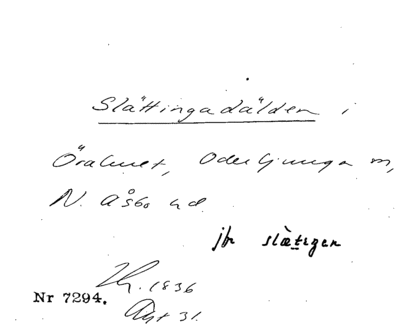 Slättingadälden i
Örahult, Oderljunga sn,
N. Åsbo hd.
jfr slæ̀tigen
Nr 7294.
1836
31.